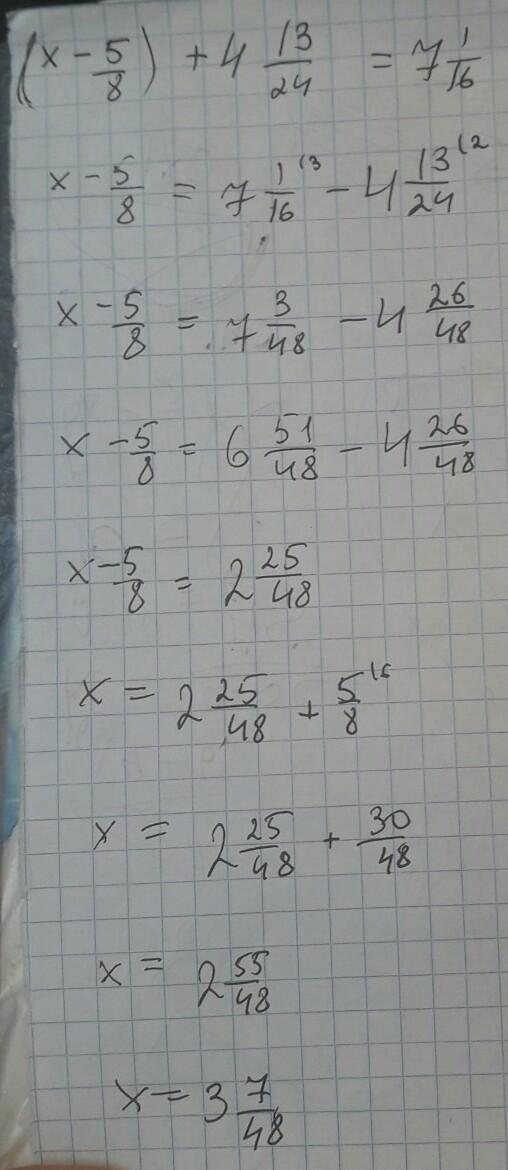 (x - 5/8) + 4 13/24 = 7 1/16
x - 5/8 = 7 1/16 (3 - 4 13/24 (2
x - 5/8 = 7 3/48 - 4 26/48
x - 5/8 = 6 51/48 - 4 26/48
x - 5/8 = 2 25/48
x = 2 25/48 + 5/8 (6
x = 2 25/48 + 30/48
x = 2 55/48
x = 3 7/48